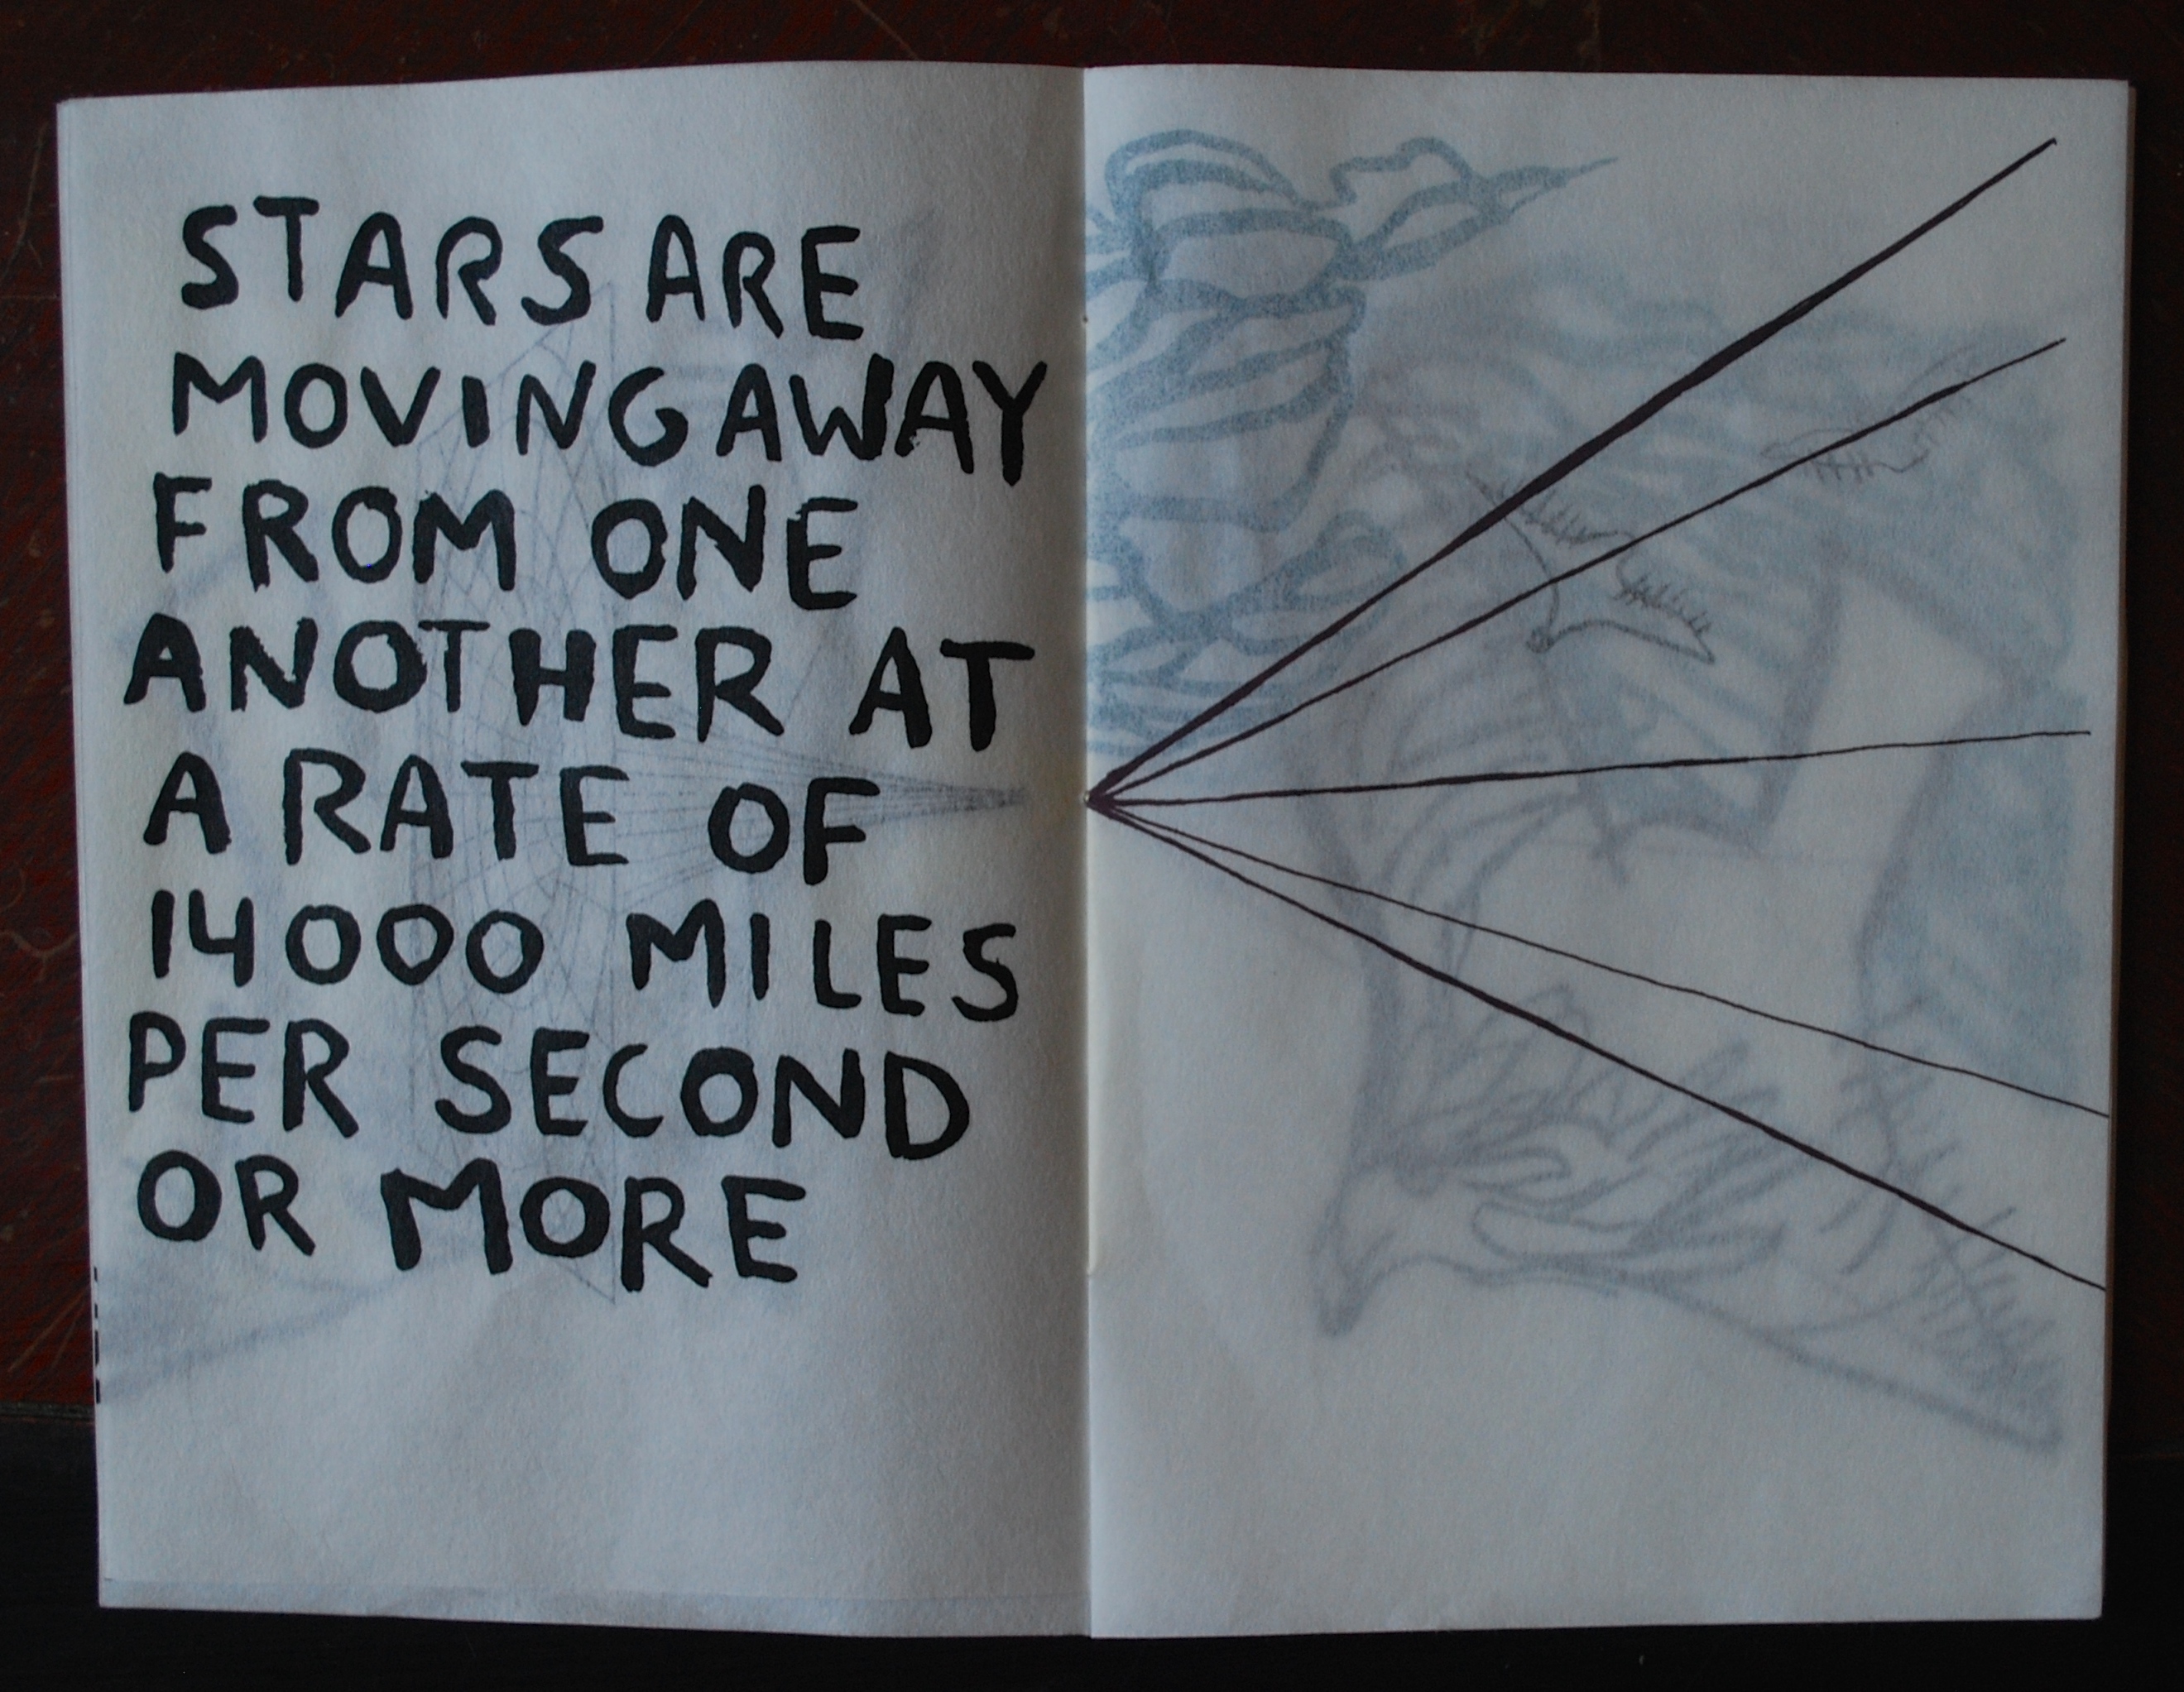 STARS ARE
MOVING AWAY
FROM ONE
ANOTHER AT
A RATE OF
14000 MILES
PER SECOND
OR MORE